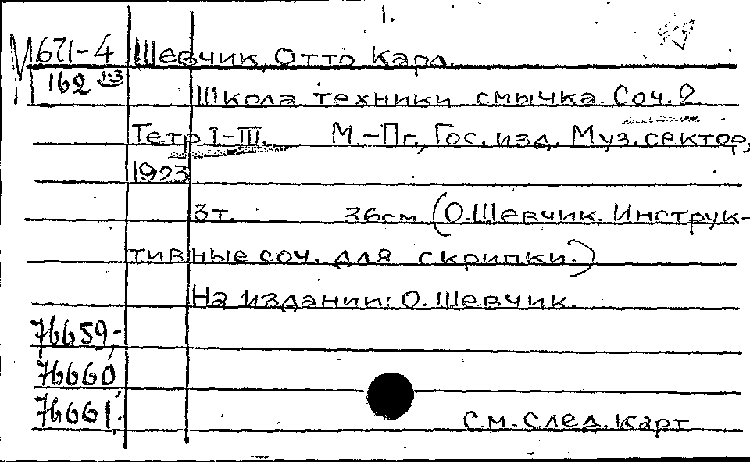 1.
М 671-4 Шевчик, Отто Карл.
162 1-3 Школа техники смычка. Соч. 2.
Тетр I-III. М.-Пг., Гос. изд. Муз. сектор,
1923
3т. 36см. (О. Шевчик. Инструк-
тивные соч. для скрипки.)
На издании: О. Шевчик.
76659-
76660
76661. См. след. карт